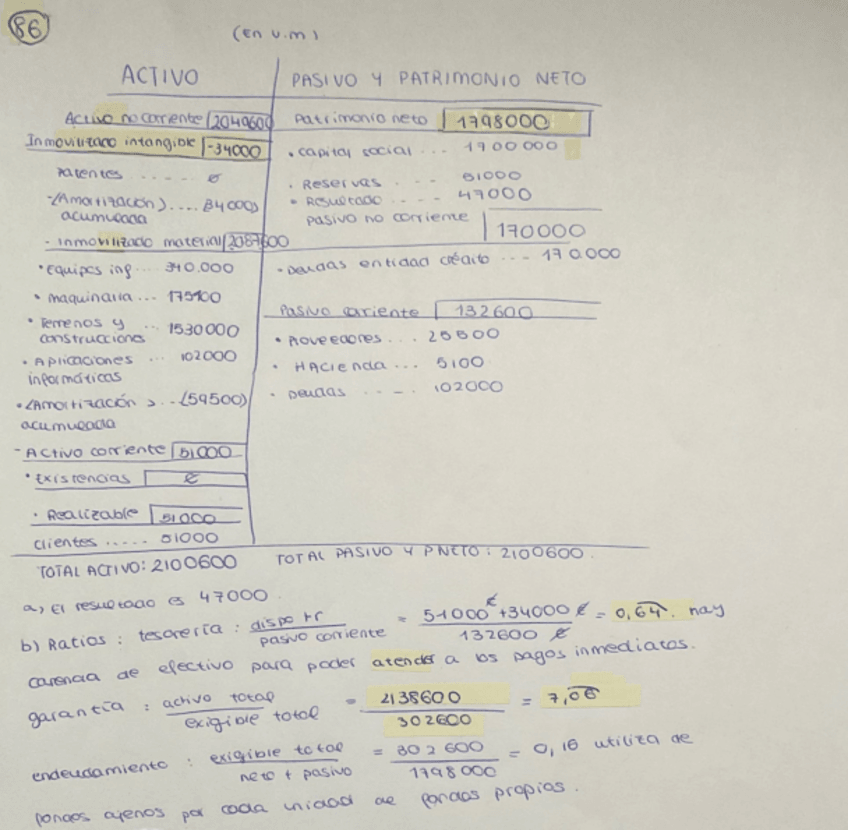 86
(En u.m)
ACTIVO
Activo no corriente 2049600
Inmovilizado intangible -34000
Patentes .....
-(Amortización).... (34000)
acumulada
- inmovilizado material 2087600
• Equipos inf... 340.000
• maquinaria ... 175100
• Terrenos y ... 1530000
construcciones
• Aplicaciones ... 102000
informáticas
• (Amortización) .. (59500)
acumulada
- Activo corriente 51000
• Existencias
• Realizable 51000
clientes ..... 51000
TOTAL ACTIVO: 2100600
PASIVO Y PATRIMONIO NETO
Patrimonio neto 1798000
• capital social ... 1700000
• Reservas .... 51000
• Resultado ..... 47000
pasivo no corriente 170000
• Deudas entidad crédito ... 170.000
Pasivo corriente 132600
• Proveedores ... 25500
• HAcienda ... 5100
• Deudas ..... 102000
TOTAL PASIVO Y PNETO: 2100600.
a) El resultado es 47000.
b) Ratios : tesorería : dispo + r / pasivo corriente = 51000 € + 34000 € / 132600 € = 0,64. hay
carencia de efectivo para poder atender a los pagos inmediatos.
garantía : activo total / exigible total = 2138600 / 302600 = 7,06
endeudamiento : exigible total / neto + pasivo = 302600 / 1798000 = 0,16 utiliza de
fondos ajenos por cada unidad de fondos propios.